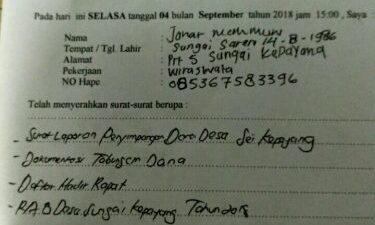 Pada hari ini SELASA tanggal 04 bulan September tahun 2018 jam 15:00 , Saya :
Nama : Johar
Tempat / Tgl. Lahir : Sungai Saren 14 - 8 - 1986
Alamat : Prt 5 Sungai Kepayang
Pekerjaan : Wiraswata
NO Hape : 085367583396
Telah menyerahkan surat-surat berupa :
- Surat Laporan Penyimpangan Dana Desa Sei Kepayang
- Dokumentasi Dana
- Daftar Hadir Rapat
- RAB Desa Sungai Kepayang Tahun